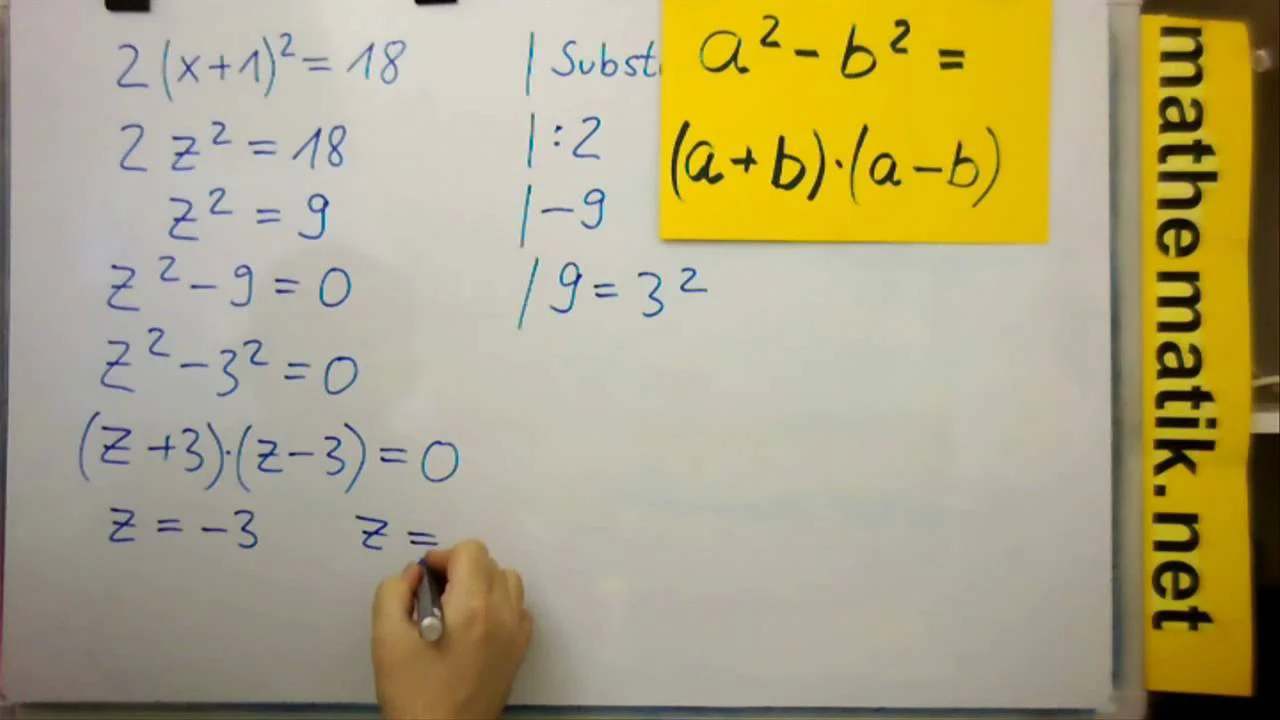 2(x+1)² = 18
2 z² = 18 | : 2
z² = 9 | - 9
z² - 9 = 0 | 9 = 3²
z² - 3² = 0
(z+3)·(z-3) = 0
z = -3 z =
a² - b² =
(a+b)·(a-b)
mathematik.net